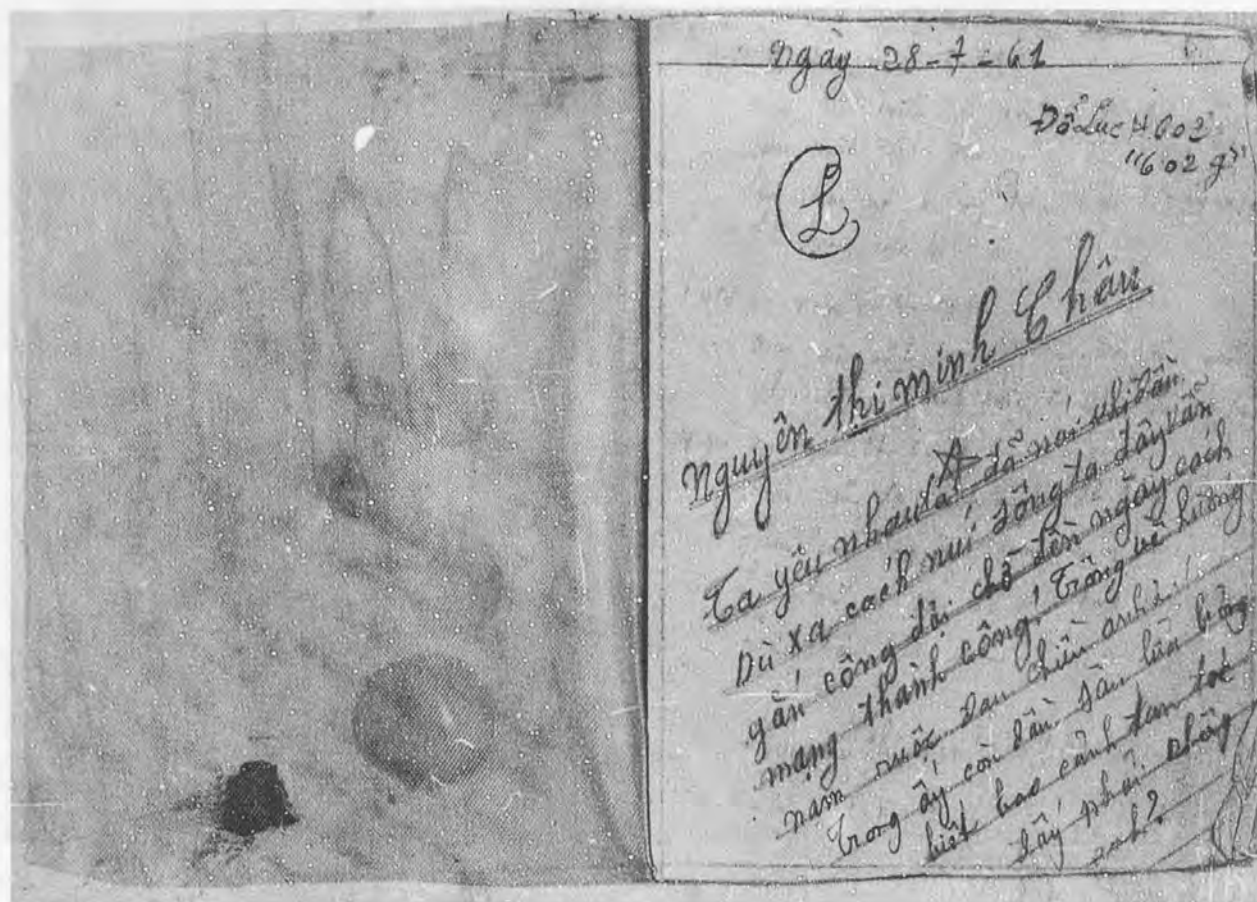 Ngày 28-7-61
Đỗ Lúc H 602
"602 g"
L
Nguyên thị minh Châu
Ta yêu nhau đã nói
Dù xa cách núi sông ta đây vẫn
gắn công đài chờ đến ngày cách
mạng thành công! Trông về hướng
nam nước
Trong ấy còn
biết bao cảnh tan tóc
đấy phải không
anh?